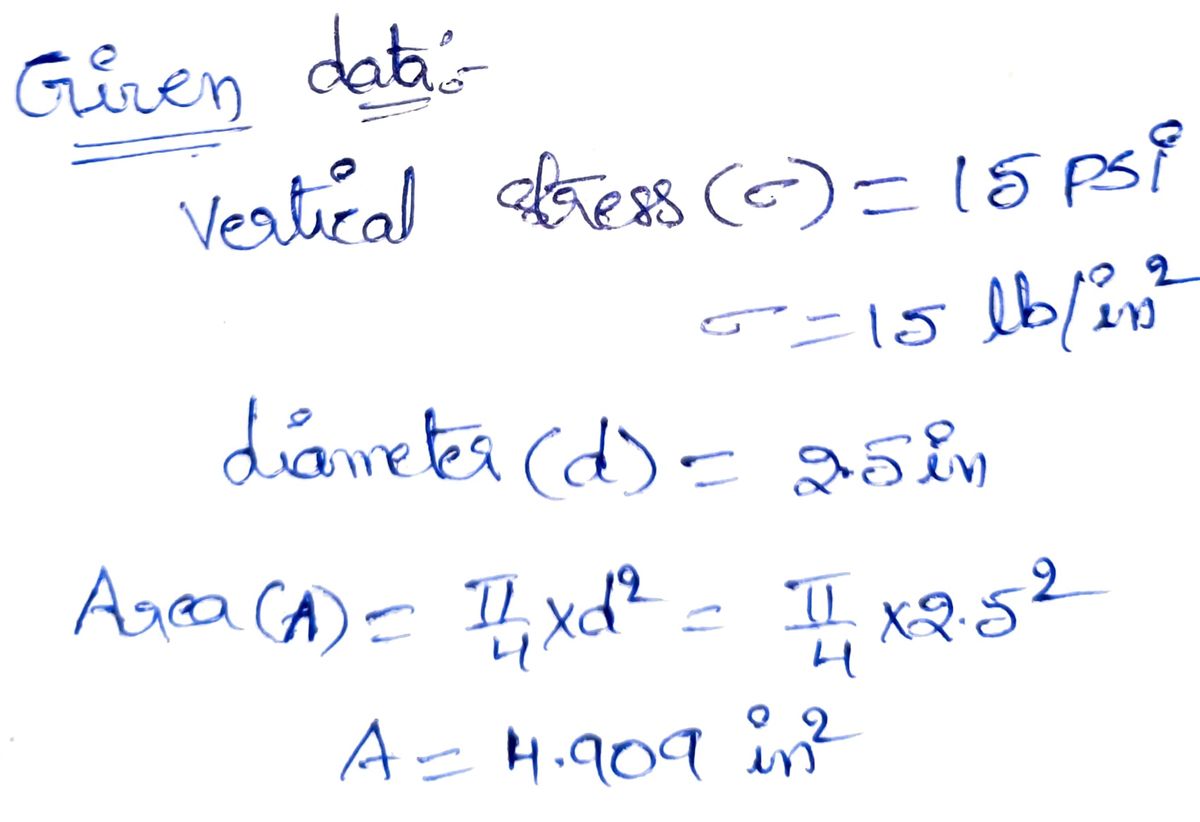 Given data:-
Vertical stress (σ) = 15 PSi
σ = 15 lb/in²
diameter (d) = 2.5 in
Area (A) = π/4 x d² = π/4 x 2.5²
A = 4.909 in²